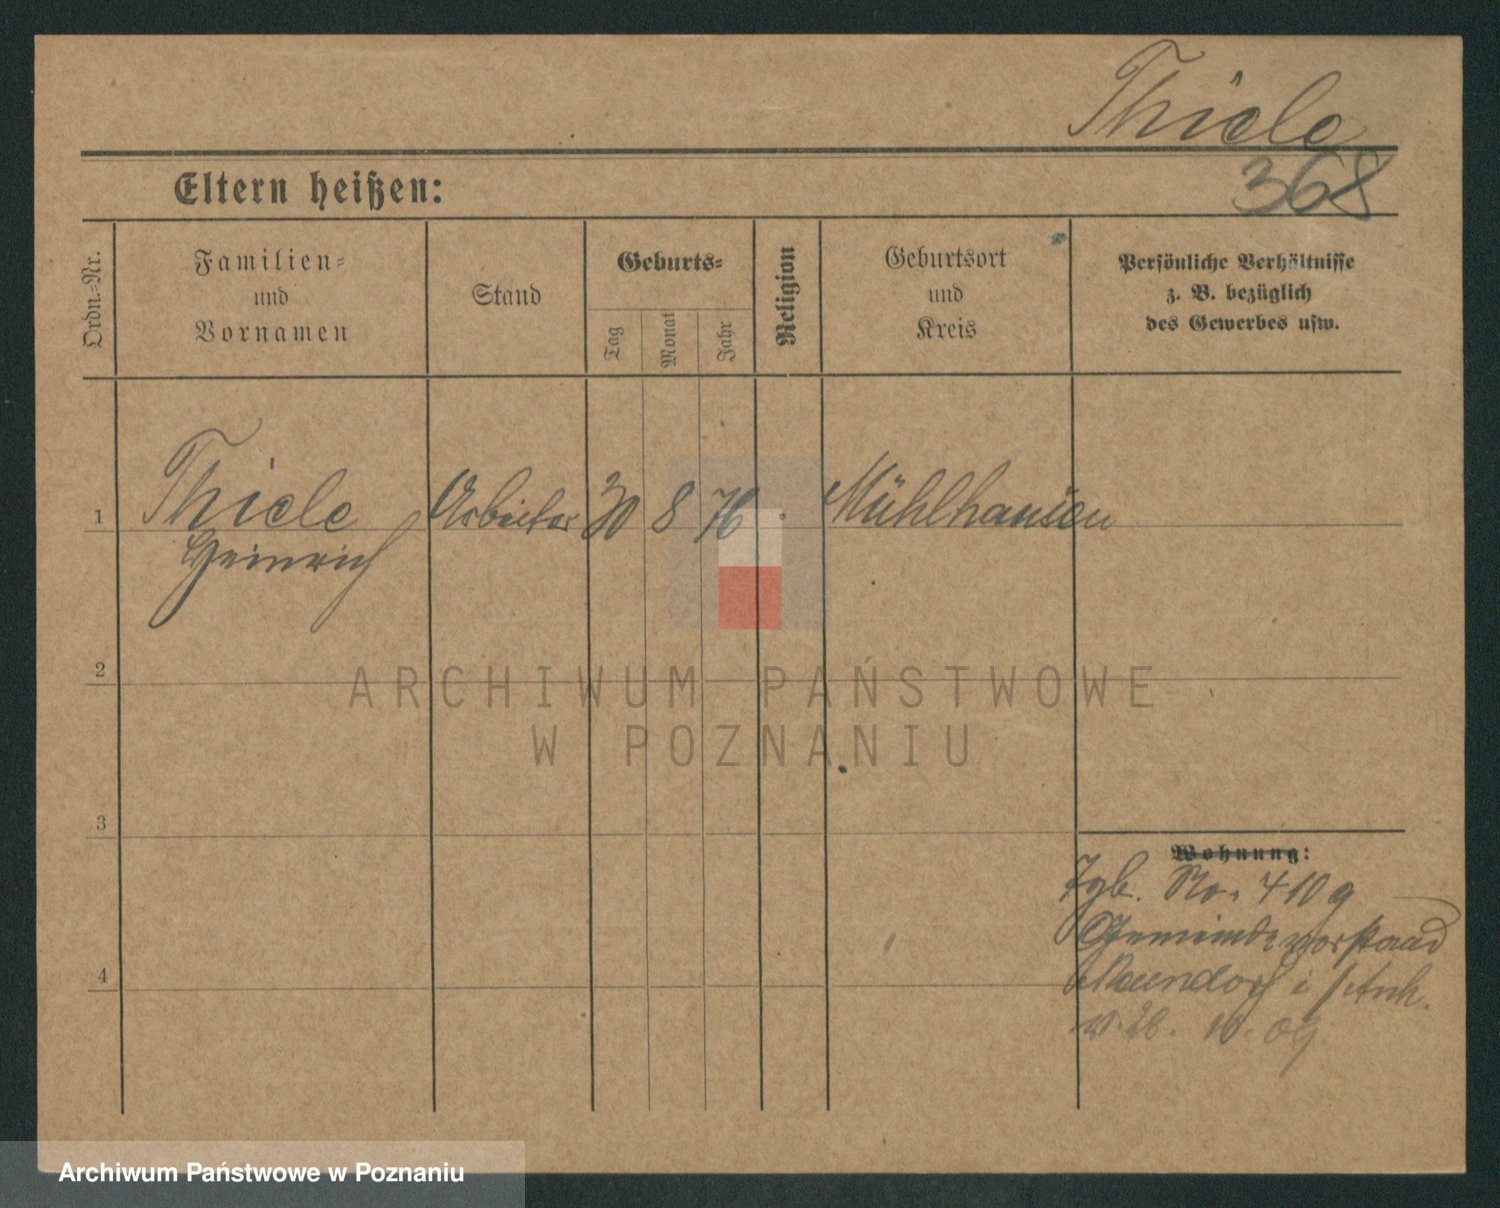 Thiele
Eltern heißen:
368
Ordn.-Nr.
Familien-
und
Vornamen
Stand
Geburts-
Tag
Monat
Jahr
Religion
Geburtsort
und
Kreis
Persönliche Verhältnisse
z. B. bezüglich
des Gewerbes usw.
1
Thiele
Heinrich
Arbeiter
30
8
76
Mühlhausen
2
ARCHIWUM PAŃSTWOWE
W POZNANIU
3
Wohnung:
Tgb. No. 410 g
Gemeindevorstand
Neundorf i / Anh.
v. 26. 10. 09
4
Archiwum Państwowe w Poznaniu